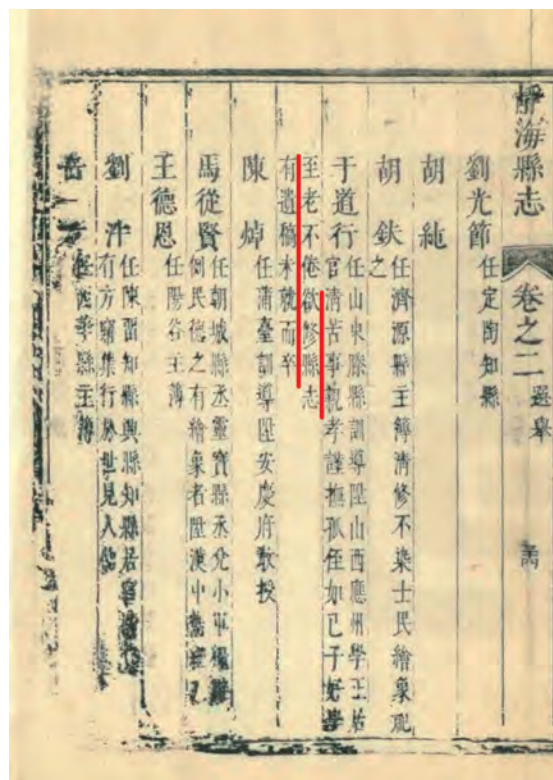 靜海縣志
卷之二
選舉
劉光節 任定陶知縣
胡純
胡鈇 任濟源縣主簿清修不染士民繪象祀
之
于道行 任山東滕縣訓導陞山西應州學正居
官清苦事親孝謹撫孤侄如己子好學
至老不倦欲修縣志
有遺稿未就而卒
陳焯 任蒲臺訓導陞安慶府教授
馬從賢 任朝城縣丞靈寶縣丞兊小軍糧
民德之有繪象者陞漢中
王德恩 任陽谷主簿
劉泮 任陳留知縣興縣知縣若
有方窮集行於世見人物
岳 西華縣主簿